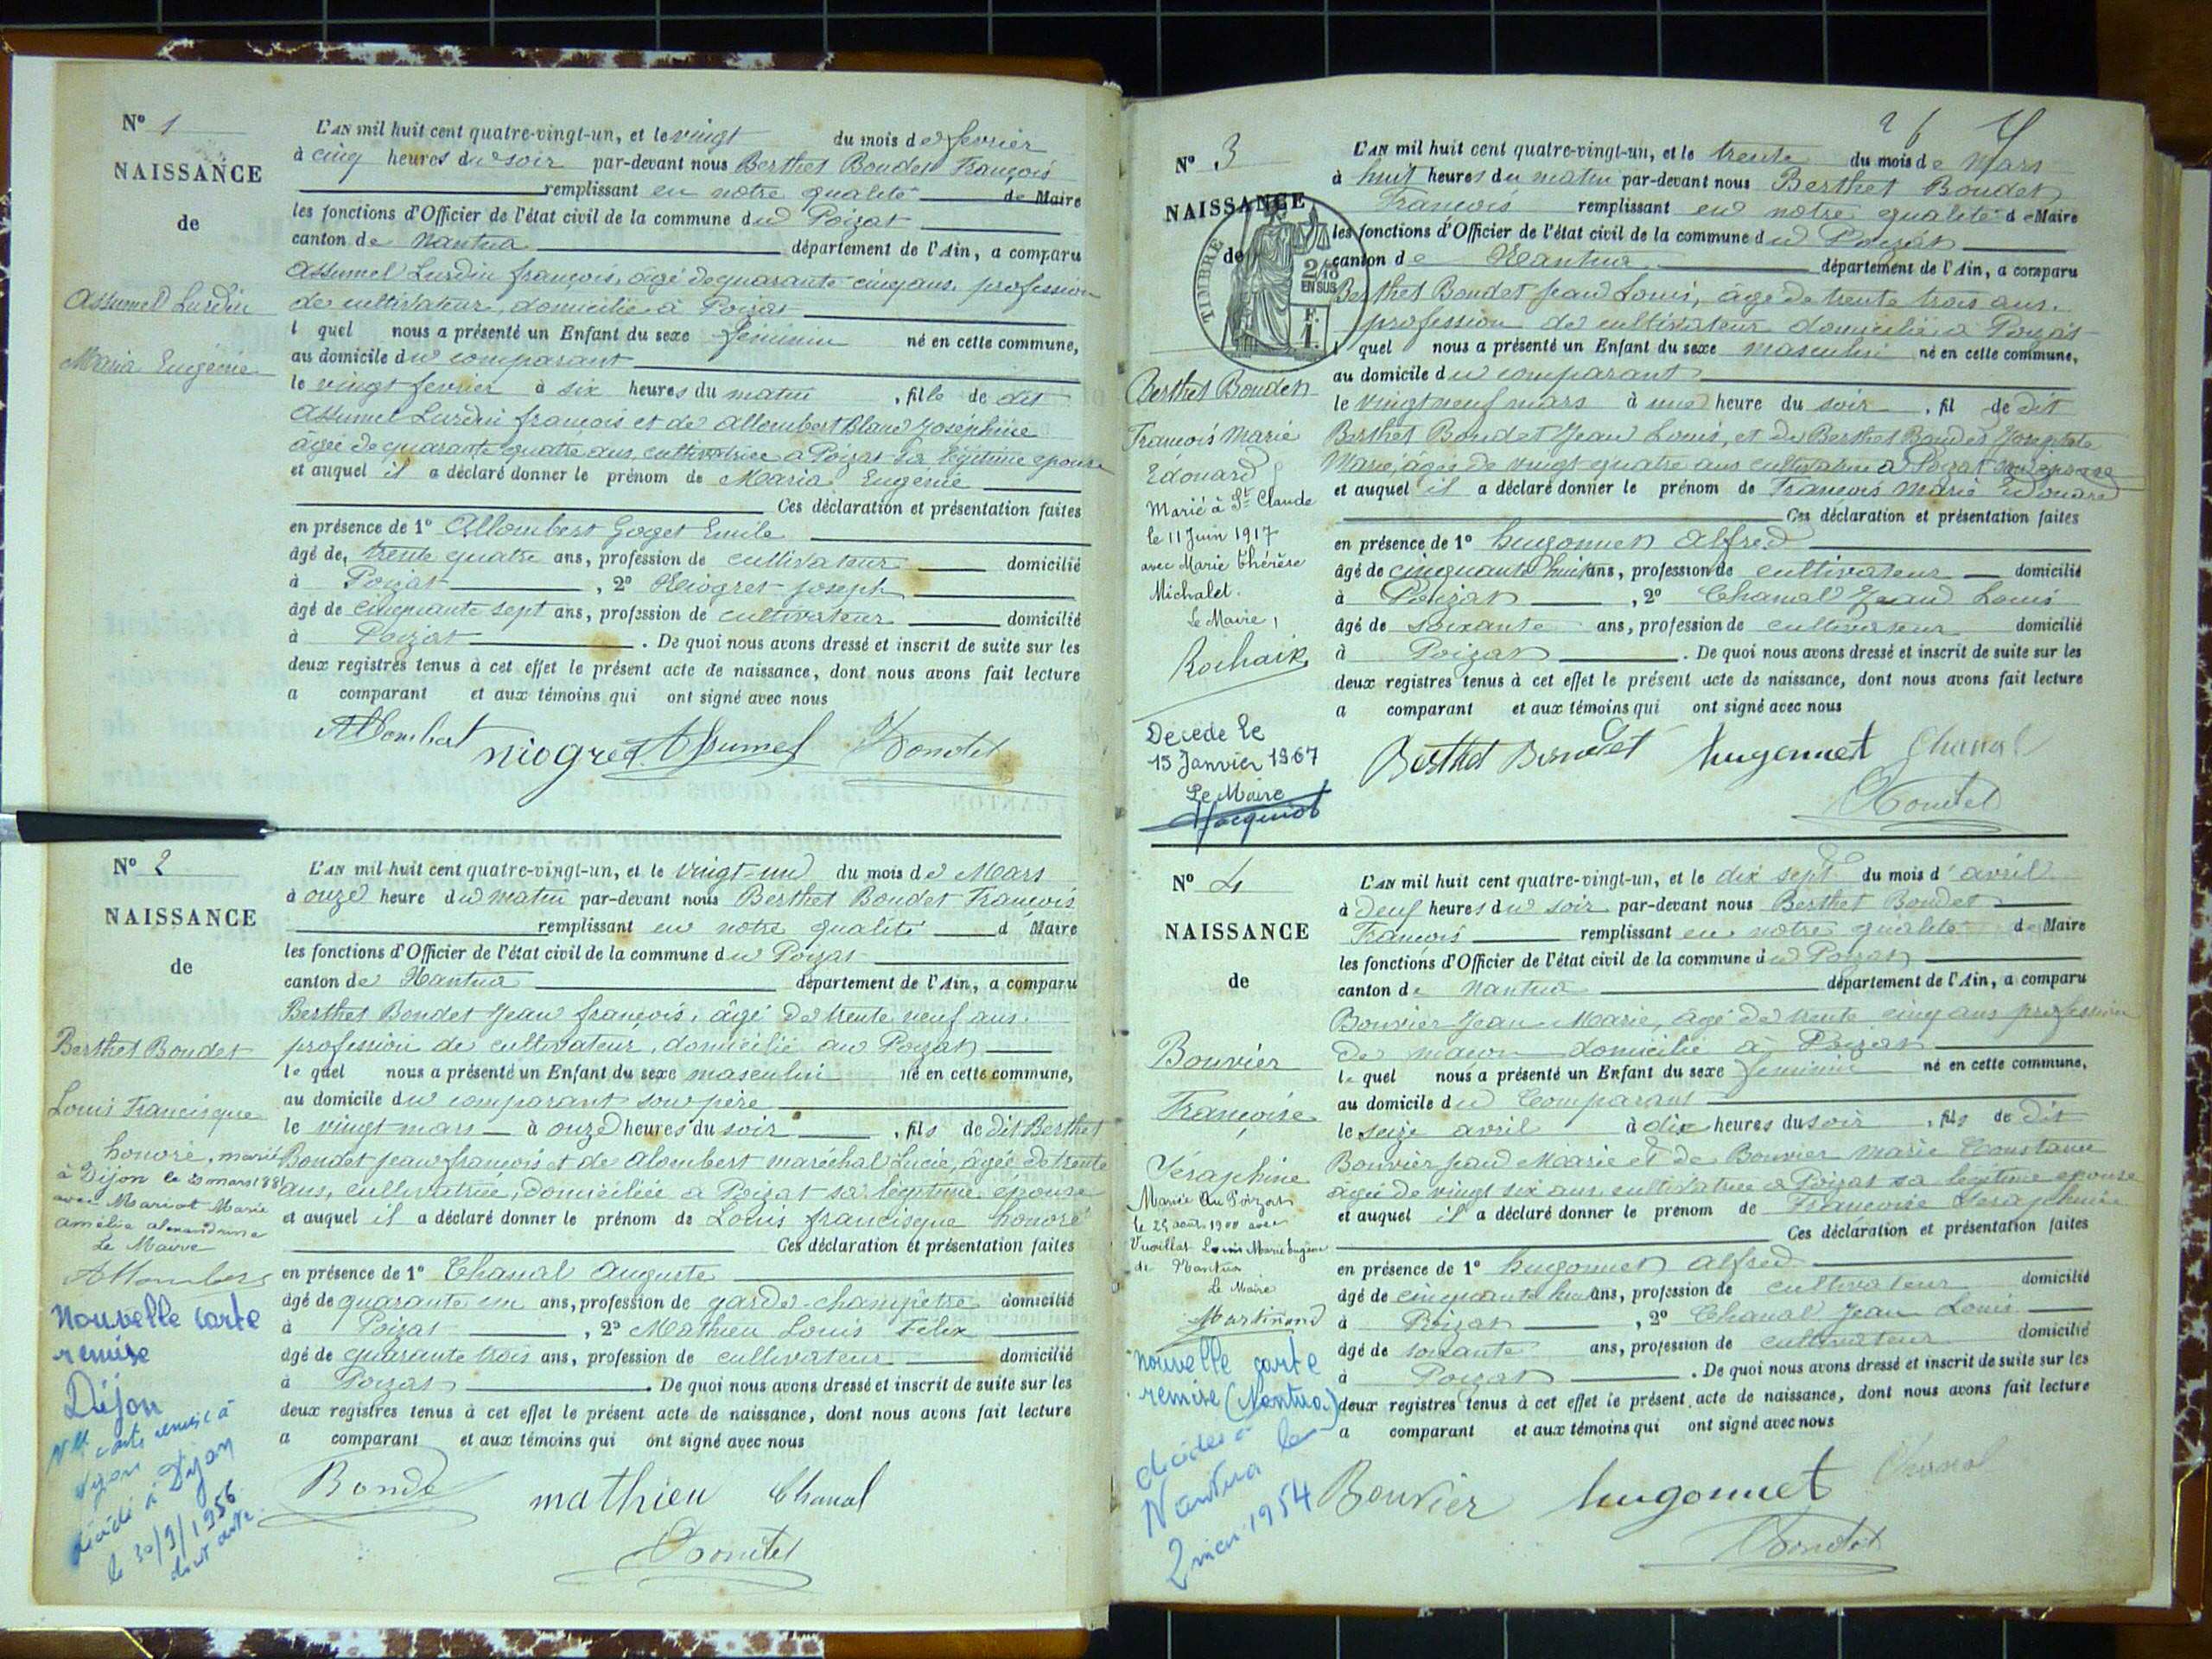 N° 1
NAISSANCE
de
Assumel Lurdin
Maria Eugénie
L'AN mil huit cent quatre-vingt-un, et le vingt du mois de février
à cinq heures du soir par-devant nous Berthet Boudet François
remplissant en notre qualité de Maire
les fonctions d'Officier de l'état civil de la commune du Poizat
canton de Nantua département de l'Ain, a comparu
Assumel Lurdin françois, âgé de quarante cinq ans, profession
de cultivateur, domicilié à Poizat
l quel nous a présenté un Enfant du sexe féminin né en cette commune,
au domicile du comparant
le vingt février à six heures du matin, fille de dit
Assumel Lurdin françois et de Allombert Blanc Joséphine
âgée de quarante quatre ans, cultivatrice a Poizat sa légitime épouse
et auquel il a déclaré donner le prénom de Maria Eugénie
Ces déclaration et présentation faites
en présence de 1° Allombert Goget Emile
âgé de, trente quatre ans, profession de cultivateur domicilié
à Poizat, 2° Niogret joseph
âgé de cinquante sept ans, profession de cultivateur domicilié
à Poizat. De quoi nous avons dressé et inscrit de suite sur les
deux registres tenus à cet effet le présent acte de naissance, dont nous avons fait lecture
a comparant et aux témoins qui ont signé avec nous
Allombert Niogret Assumel Boudet
N° 2
NAISSANCE
de
Berthet Boudet
Louis Francisque
honoré, marié
à Dijon le 20 mars
avec Mariot Marie
amélie alexandrine
Le Maire
Allombert
Nouvelle carte
remise
Dijon
Nlle carte remise à
Dijon
décédé à Dijon
le 30/9/1956
L'AN mil huit cent quatre-vingt-un, et le vingt-un du mois de Mars
à onze heure du matin par-devant nous Berthet Boudet François
remplissant en notre qualité d Maire
les fonctions d'Officier de l'état civil de la commune du Poizat
canton de Nantua département de l'Ain, a comparu
Berthet Boudet Jean françois, âgé de trente neuf ans.
profession de cultivateur, domicilié au Poizat
le quel nous a présenté un Enfant du sexe masculin né en cette commune,
au domicile du comparant son père
le vingt mars à onze heures du soir, fils de dit Berthet
Boudet jean françois et de Alombert maréchal Lucie, âgée de trente
ans, cultivatrice, domiciliée a Poizat sa légitime épouse
et auquel il a déclaré donner le prénom de Louis francisque honoré
Ces déclaration et présentation faites
en présence de 1° Chanal Auguste
âgé de quarante un ans, profession de garde-champêtre domicilié
à Poizat, 2° Mathieu Louis Félix
âgé de quarante trois ans, profession de cultivateur domicilié
à Poizat. De quoi nous avons dressé et inscrit de suite sur les
deux registres tenus à cet effet le présent acte de naissance, dont nous avons fait lecture
a comparant et aux témoins qui ont signé avec nous
Boudet mathieu Chanal
Boudet
N° 3
NAISSANCE
de
TIMBRE
2/10
EN SUS
F.
1.
Berthet Boudet
François Marie
Edouard
Marié à St Claude
le 11 Juin 1917
avec Marie Thérèse
Michalet.
Le Maire,
Décédé le
15 Janvier 1967
Le Maire
L'AN mil huit cent quatre-vingt-un, et le trente du mois de Mars
à huit heures du matin par-devant nous Berthet Boudet
François remplissant en notre qualité de Maire
les fonctions d'Officier de l'état civil de la commune du Poizat
canton de Nantua département de l'Ain, a comparu
Berthet Boudet Jean Louis, âgé de trente trois ans.
profession de cultivateur domicilié a Poizat
l quel nous a présenté un Enfant du sexe masculin né en cette commune,
au domicile du comparant
le vingt neuf mars à une heure du soir, fil de dit
Berthet Boudet Jean Louis, et de Berthet Boudet Josephte
Marie, âgée de vingt quatre ans cultivatrice a Poizat son épouse
et auquel il a déclaré donner le prénom de François Marie Edouard
Ces déclaration et présentation faites
en présence de 1° hugonnet Alfred
âgé de cinquante huit ans, profession de cultivateur domicilié
à Poizat, 2° Chanal Jean Louis
âgé de soixante ans, profession de cultivateur domicilié
à Poizat. De quoi nous avons dressé et inscrit de suite sur les
deux registres tenus à cet effet le présent acte de naissance, dont nous avons fait lecture
a comparant et aux témoins qui ont signé avec nous
Berthet Boudet hugonnet Chanal
Boudet
N° 4
NAISSANCE
de
Bouvier
Françoise
Séraphine
Mariée au Poizat
le 25 août 1900 avec
Vuaillat Louis Marie Eugène
de Nantua
Le Maire
Martinand
nouvelle carte
remise (Nantua)
décédée à
Nantua le
2 mai 1954
L'AN mil huit cent quatre-vingt-un, et le dix sept du mois d'avril
à neuf heures du soir par-devant nous Berthet Boudet
François remplissant en notre qualité de Maire
les fonctions d'Officier de l'état civil de la commune du Poizat
canton de Nantua département de l'Ain, a comparu
Bouvier Jean Marie, âgé de trente cinq ans profession
de maçon domicilié à Poizat
le quel nous a présenté un Enfant du sexe féminin né en cette commune,
au domicile du Comparant
le seize avril à dix heures du soir, fils de dit
Bouvier jean Marie et de Bouvier Marie Constance
âgée de vingt six ans cultivatrice a Poizat sa légitime épouse
et auquel il a déclaré donner le prénom de Françoise Séraphine
Ces déclaration et présentation faites
en présence de 1° hugonnet Alfred
âgé de cinquante huit ans, profession de cultivateur domicilié
à Poizat, 2° Chanal Jean Louis
âgé de soixante ans, profession de cultivateur domicilié
à Poizat. De quoi nous avons dressé et inscrit de suite sur les
deux registres tenus à cet effet le présent acte de naissance, dont nous avons fait lecture
a comparant et aux témoins qui ont signé avec nous
Bouvier hugonnet Chanal
Boudet